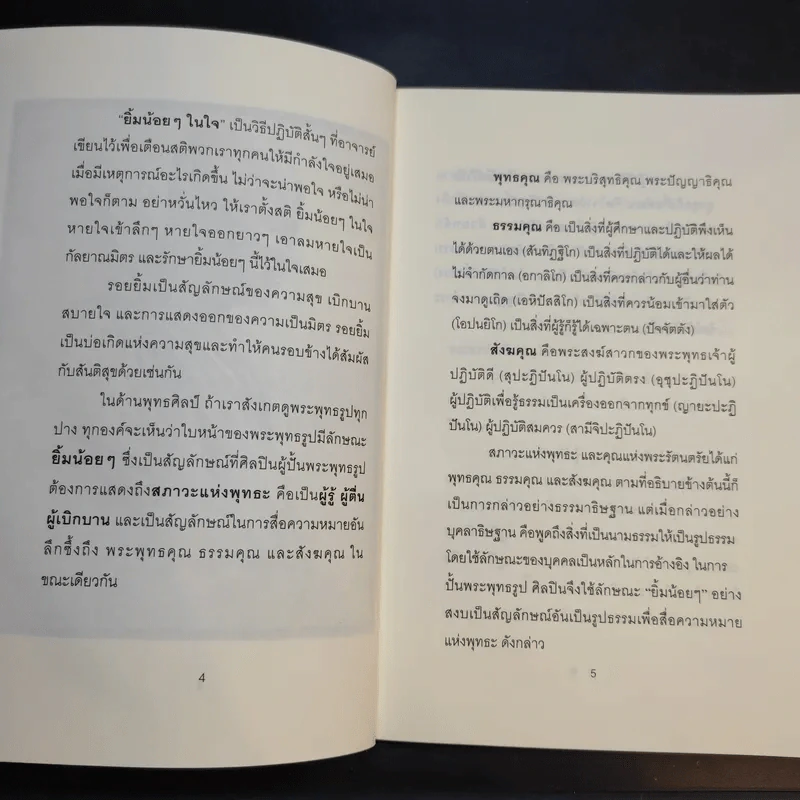 “ยิ้มน้อยๆ ในใจ” เป็นวิธีปฏิบัติสั้นๆ ที่อาจารย์
เขียนไว้เพื่อเตือนสติพวกเราทุกคนให้มีกำลังใจอยู่เสมอ
เมื่อมีเหตุการณ์อะไรเกิดขึ้น ไม่ว่าจะน่าพอใจ หรือไม่น่า
พอใจก็ตาม อย่าหวั่นไหว ให้เราตั้งสติ ยิ้มน้อยๆ ในใจ
หายใจเข้าลึกๆ หายใจออกยาวๆ เอาลมหายใจเป็น
กัลยาณมิตร และรักษายิ้มน้อยๆ นี้ไว้ในใจเสมอ
รอยยิ้มเป็นสัญลักษณ์ของความสุข เบิกบาน
สบายใจ และการแสดงออกของความเป็นมิตร รอยยิ้ม
เป็นบ่อเกิดแห่งความสุขและทำให้คนรอบข้างได้สัมผัส
กับสันติสุขด้วยเช่นกัน
ในด้านพุทธศิลป์ ถ้าเราสังเกตดูพระพุทธรูปทุก
ปาง ทุกองค์จะเห็นว่าใบหน้าของพระพุทธรูปมีลักษณะ
ยิ้มน้อยๆ ซึ่งเป็นสัญลักษณ์ที่ศิลปินผู้ปั้นพระพุทธรูป
ต้องการแสดงถึงสภาวะแห่งพุทธะ คือเป็นผู้รู้ ผู้ตื่น
ผู้เบิกบาน และเป็นสัญลักษณ์ในการสื่อความหมายอัน
ลึกซึ้งถึง พระพุทธคุณ ธรรมคุณ และสังฆคุณ ใน
ขณะเดียวกัน
4
พุทธคุณ คือ พระบริสุทธิคุณ พระปัญญาธิคุณ
และพระมหากรุณาธิคุณ
ธรรมคุณ คือ เป็นสิ่งที่ผู้ศึกษาและปฏิบัติพึงเห็น
ได้ด้วยตนเอง (สันทิฏฐิโก) เป็นสิ่งที่ปฏิบัติได้และให้ผลได้
ไม่จำกัดกาล (อกาลิโก) เป็นสิ่งที่ควรกล่าวกับผู้อื่นว่าท่าน
จงมาดูเถิด (เอหิปัสสิโก) เป็นสิ่งที่ควรน้อมเข้ามาใส่ตัว
(โอปนยิโก) เป็นสิ่งที่ผู้รู้ก็รู้ได้เฉพาะตน (ปัจจัตตัง)
สังฆคุณ คือพระสงฆ์สาวกของพระพุทธเจ้าผู้
ปฏิบัติดี (สุปะฏิปันโน) ผู้ปฏิบัติตรง (อุชุปะฏิปันโน)
ผู้ปฏิบัติเพื่อรู้ธรรมเป็นเครื่องออกจากทุกข์ (ญายะปะฏิ
ปันโน) ผู้ปฏิบัติสมควร (สามีจิปะฏิปันโน)
สภาวะแห่งพุทธะ และคุณแห่งพระรัตนตรัยได้แก่
พุทธคุณ ธรรมคุณ และสังฆคุณ ตามที่อธิบายข้างต้นนี้ก็
เป็นการกล่าวอย่างธรรมาธิษฐาน แต่เมื่อกล่าวอย่าง
บุคลาธิษฐาน คือพูดถึงสิ่งที่เป็นนามธรรมให้เป็นรูปธรรม
โดยใช้ลักษณะของบุคคลเป็นหลักในการอ้างอิง ในการ
ปั้นพระพุทธรูป ศิลปินจึงใช้ลักษณะ “ยิ้มน้อยๆ” อย่าง
สงบเป็นสัญลักษณ์อันเป็นรูปธรรมเพื่อสื่อความหมาย
แห่งพุทธะ ดังกล่าว
5